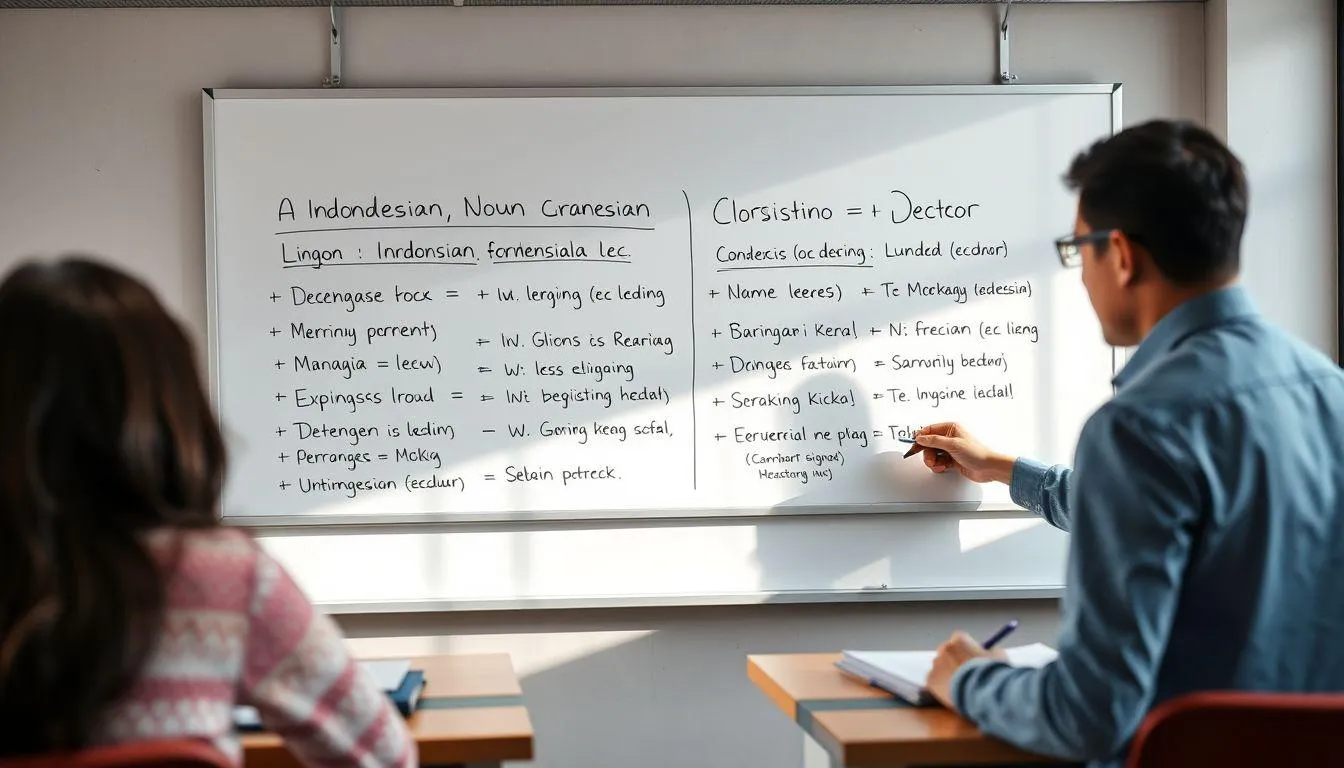 A Indondesian, Noun Cranesian
Lingon : Inrdonsian. fornensiala lec.
+ Decengase tock = + lw. lerging (ec leding
+ Merriny pcrrent)
= lW. Glions is Rearing
+ Managia = lecw)
= W: less eligaing
+ Expingses lroud = = lNt begisting hedal)
+ Detengen is ledin)
– W. Goring keng scfal,
+ Perranges = Mckig
+ Untimgesian (ecdlur) = Sebain petreck.
Clorsistino = + Dectcor
Condexis (oc dering : Lunded (ecdnor)
+ Name leeres) + Te Mockagy (edesin)
+ Baringari Keral + N: frecian (ec lieng
+ Doinges fatain) = Samonily bedai)
+ Seraking Kickal = Te. Ingsine ledal!
+ Eeruerial ne plag =
(Carrhart signed)
Heastary